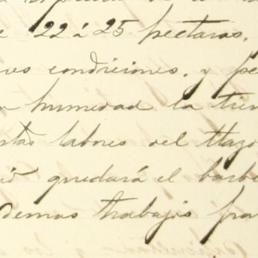 e 22 á 25 hectaras,
res condiciones, y pe
humedad la tier
tas labores del tlazo
quedará el barbe
demas trabajos pra